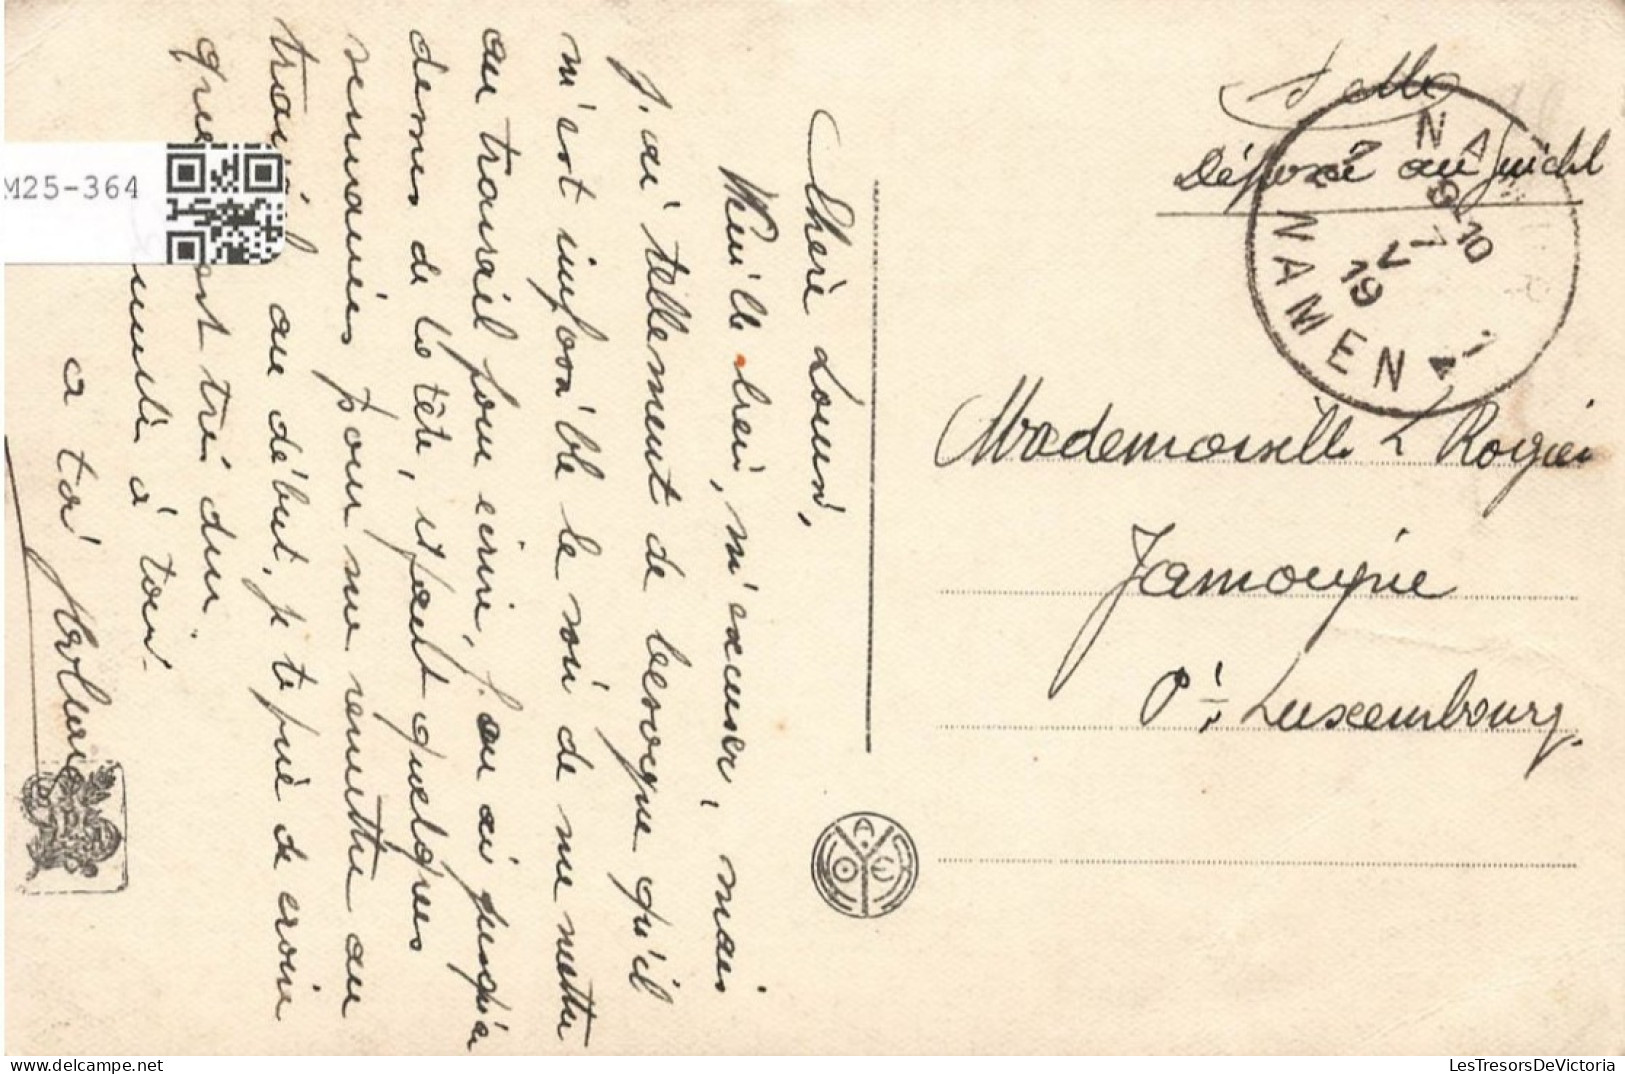 Chère Louise,
Veuille bien, m'excuser, mais
j'ai tellement de besogne qu'il
m'est impossible le soir de me mettre
au travail pour écrire, j'en ai jusqu'au
dessus de la tête, il faut quelques
semaines pour me remettre au
travail au début, je te prie de croire
que est très dur.
à toi.
a toi
M25-364
Déposé au guichet
NA
NAMEN
8-10
7
V
19
Mademoiselle L Rogier
Jamoigne
Luxembourg.
LesTresorsDeVictoria